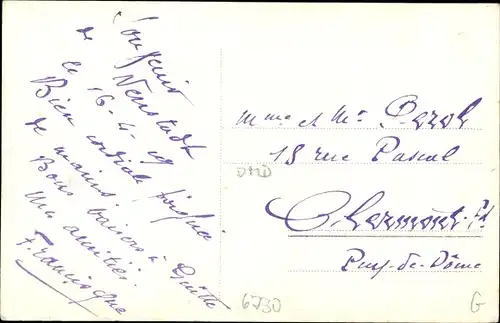 Souvenir
de Neustadt
le 16-4-49
Bien cordiale poignée
de mains.
Bons baisers à Guitte
Mes amitiés.
Francisque
Mme et Mr Perol
18 rue Pascal
Clermont-Fd
Puy-de-Dôme
DMD
6730
G